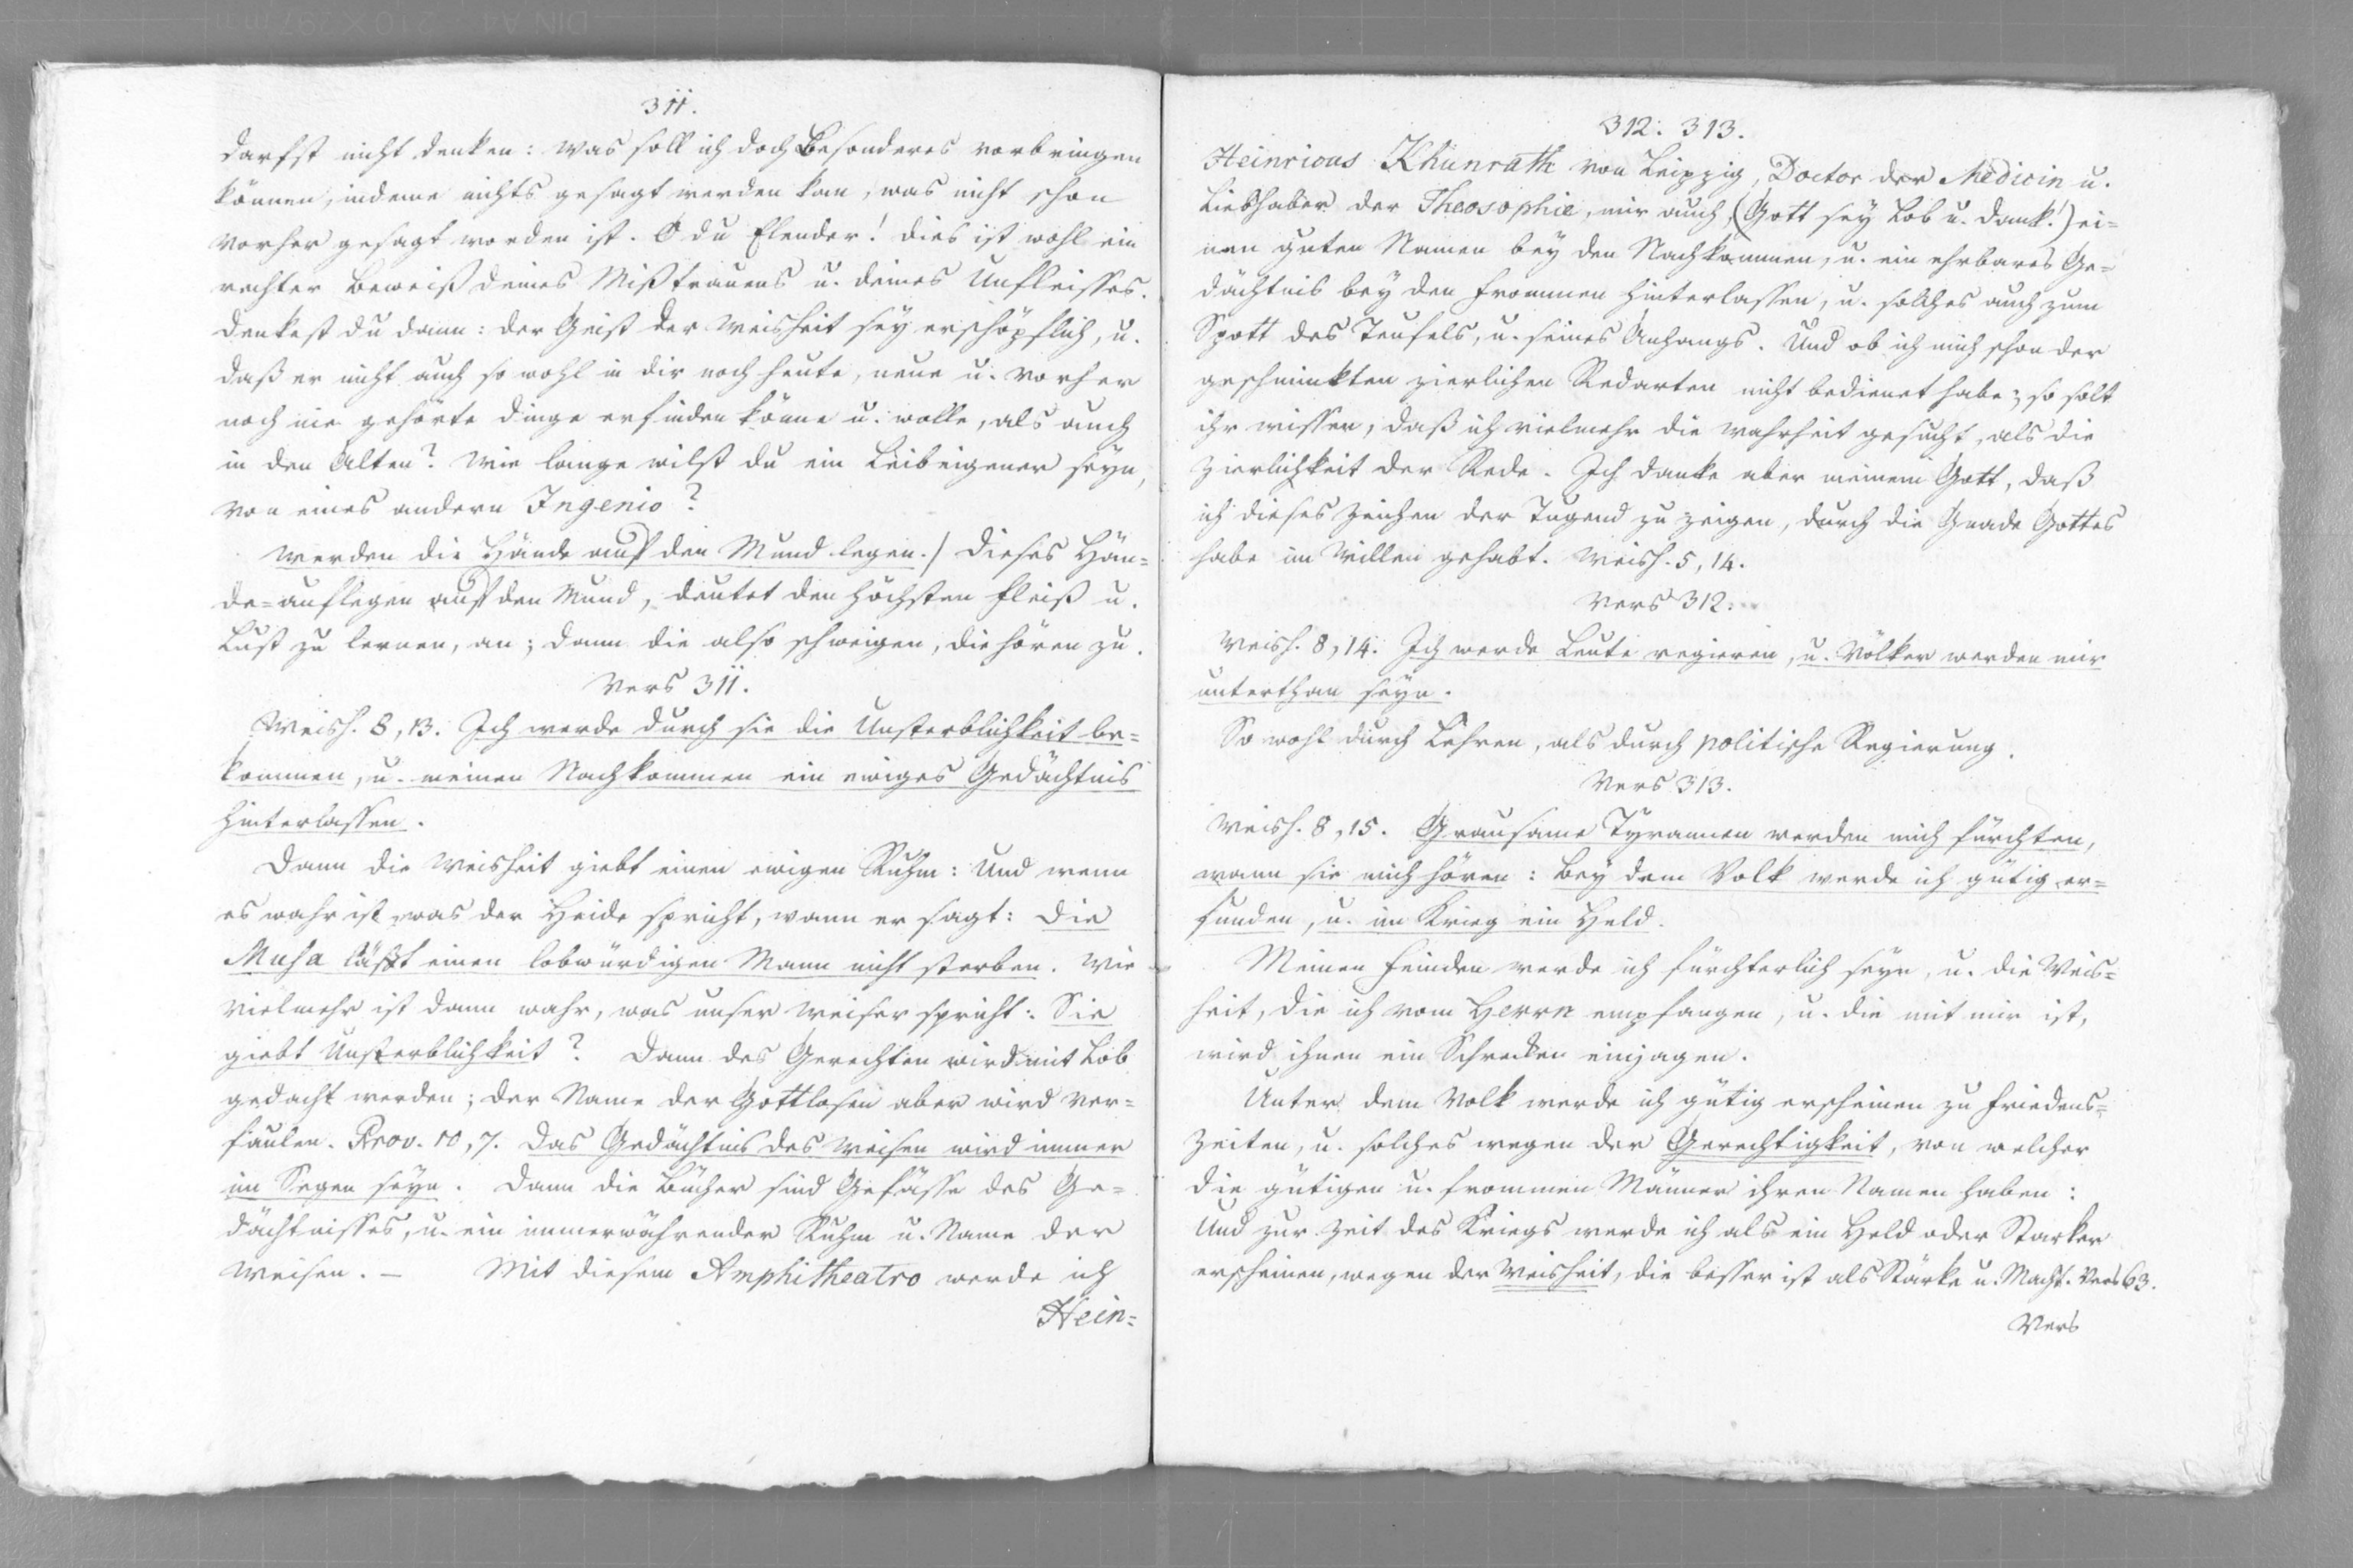 311.
darfst nicht denken: Was soll ich doch Besonderes vorbringen
können, indeme nichts gesagt werden kan, was nicht schon
vorher gesagt worden ist. O du Elender! dies ist wohl ein
rechter Beweiß deines Mißtrauens u. deines Unfleisses.
Denkest du dann: der Geist der Weisheit sey erschöpflich, u.
daß er nicht auch so wohl in dir noch heute, neue u. vorher
noch nie gehörte Dinge erfinden könne u. wolle, als auch
in den Alten? Wie lange wilst du ein Leibeigener seyn,
von eines andern Ingenio?
Werden die Hände auf den Mund legen./ Dieses Hän=
de=auflegen auf den Mund, deutet den höchsten Fleiß u.
Lust zu lernen, an; dann die also schweigen, die hören zu.
Vers 311.
Weish. 8, 13. Ich werde durch sie die Unsterblichkeit be=
kommen, u. meinen Nachkommen ein ewiges Gedächtnis
hinterlassen.
Dann die Weisheit giebt einen ewigen Ruhm: Und wenn
es wahr ist, was der Heide spricht, wann er sagt: Die
Musa läßt einen lobwürdigen Mann nicht sterben. Wie
vielmehr ist dann wahr, was unser Weiser spricht: Sie
giebt Unsterblichkeit? Dann des Gerechten wird mit Lob
gedacht werden; der Name der Gottlosen aber wird ver=
faulen. Prov. 10, 7. Das Gedächtnis des Weisen wird immer
im Segen seyn. Dann die Bücher sind Gefässe des Ge=
dächtnisses, u. ein immerwährender Ruhm u. Name der
Weisen. — Mit diesem Amphitheatro werde ich
Hein=
312. 313.
Heinricus Khunrath von Leipzig, Doctor der Medicin u.
Liebhaber der Theosophie, mir auch, (Gott sey Lob u. Dank!) ei=
nen guten Namen bey den Nachkommen, u. ein ehrbares Ge=
dächtnis bey den Frommen hinterlassen, u. solches auch zum
Spott des Teufels, u. seines Anhangs. Und ob ich mich schon der
geschminkten zierlichen Redarten nicht bedienet habe; so solt
ihr wissen, daß ich vielmehr die Wahrheit gesucht, als die
Zierlichkeit der Rede. Ich danke aber meinem Gott, daß
ich dieses Zeichen der Tugend zu zeigen, durch die Gnade Gottes
habe im Willen gehabt. Weish. 5, 14.
Vers 312.
Weish. 8, 14. Ich werde Leute regieren, u. Völker werden mir
unterthan seyn.
So wohl durch Lehren, als durch politische Regierung.
Vers 313.
Weish. 8, 15. Grausame Tyrannen werden mich fürchten,
wann sie mich hören: bey dem Volk werde ich gütig er=
funden, u. im Krieg ein Held.
Meinen Feinden werde ich fürchterlich seyn, u. die Weis=
heit, die ich vom Herrn empfangen, u. die mit mir ist,
wird ihnen ein Schrecken einjagen.
Unter dem Volk werde ich gütig erscheinen zu Friedens=
Zeiten, u. solches wegen der Gerechtigkeit, von welcher
die gütigen u. frommen Männer ihren Namen haben:
Und zur Zeit des Kriegs werde ich als ein Held oder Starker
erscheinen, wegen der Weisheit, die besser ist als Stärke u. Macht. Vers 63.
Vers